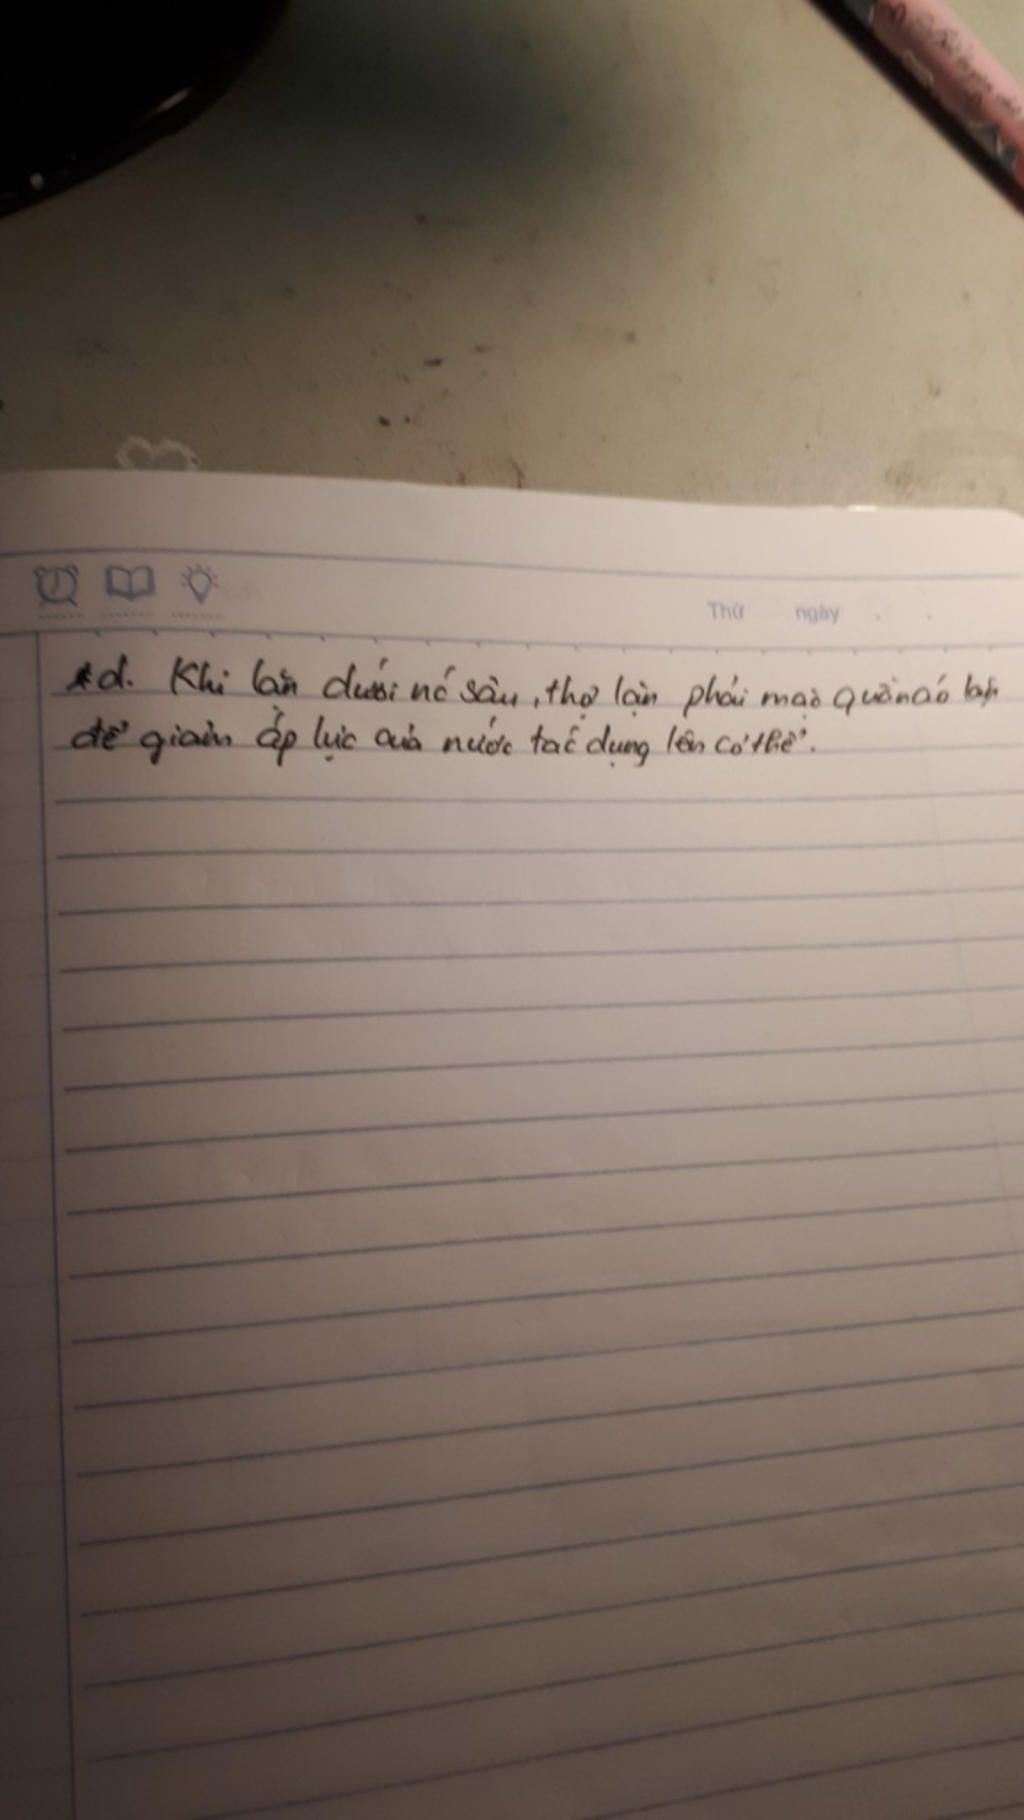 Thứ ngày . .
d. Khi lặn dưới nó sâu, thợ lặn phải mặc quần áo lặn
để giảm áp lực của nước tác dụng lên cơ thể.